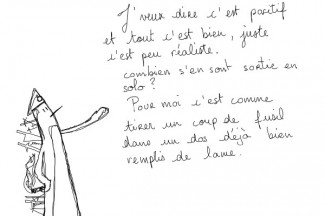 J'veux dire c'est positif
et tout c'est bien, juste
c'est peu réaliste.
combien s'en sont sortie en
solo ?
Pour moi c'est comme
tirer un coup de fusil
dans un dos déjà bien
remplis de lame.